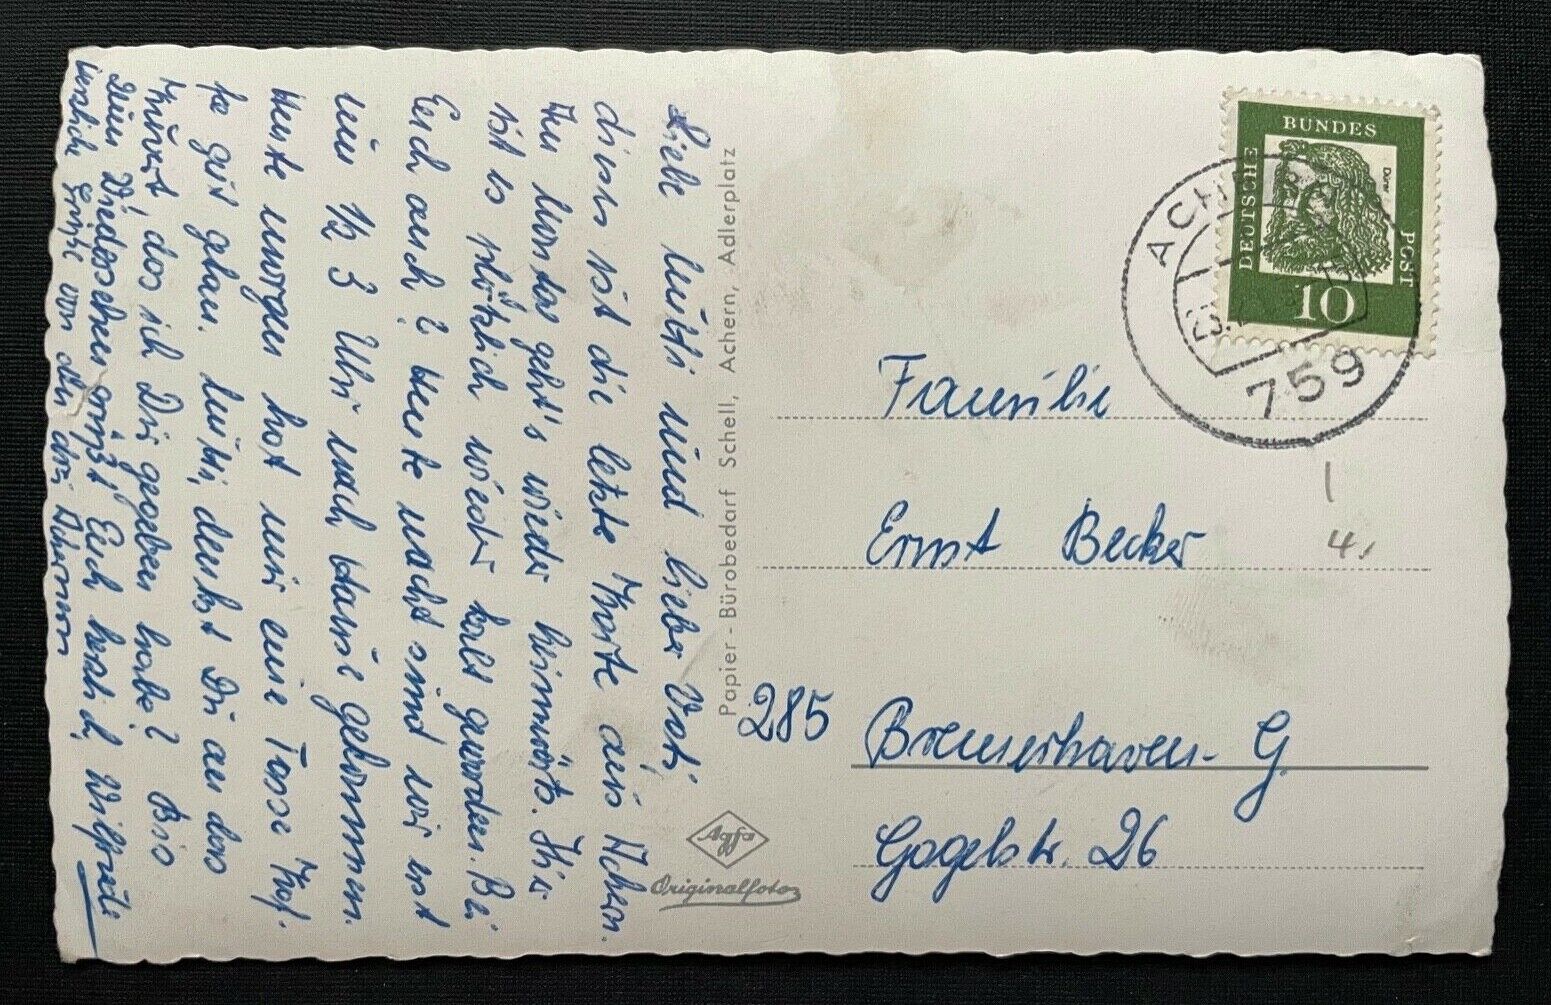 Liebe Mutti und lieber Vati,
dieses ist die letzte Karte aus Achern.
Am Montag geht's wieder heimwärts. Hier
ist es plötzlich wieder kalt geworden. Bei
Euch auch? Heute nacht sind wir erst
um ½ 3 Uhr nach Hause gekommen
Heute morgen hat mir eine Tasse Kaf-
fe gut getan. Mutti, denkst Du an das
Kuvert, das ich Dir gegeben habe? Bis
zum Wiedersehen grüßt Euch herzlich, Wiltrud
herzliche Grüße von den drei
Papier - Bürobedarf Schell, Achern, Adlerplatz
Agfa
Originalfoto
DEUTSCHE BUNDES POST
Dürer
10
ACH
759
Familie
Ernst Becker
285 Bremerhaven- G.
Gogelstr. 26
1
4,